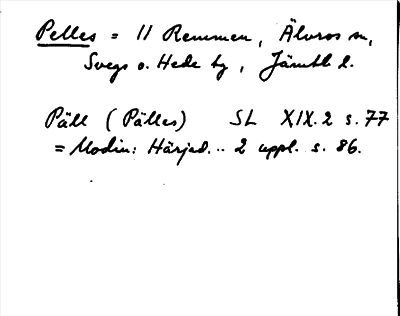 Pelles = 11 Remmen, Älvros sn,
Svegs o. Hede tg, Jämtl l.
Päll (Pälles) SL XIX.2 s. 77
= Modin: Härjed... 2 uppl. s. 86.